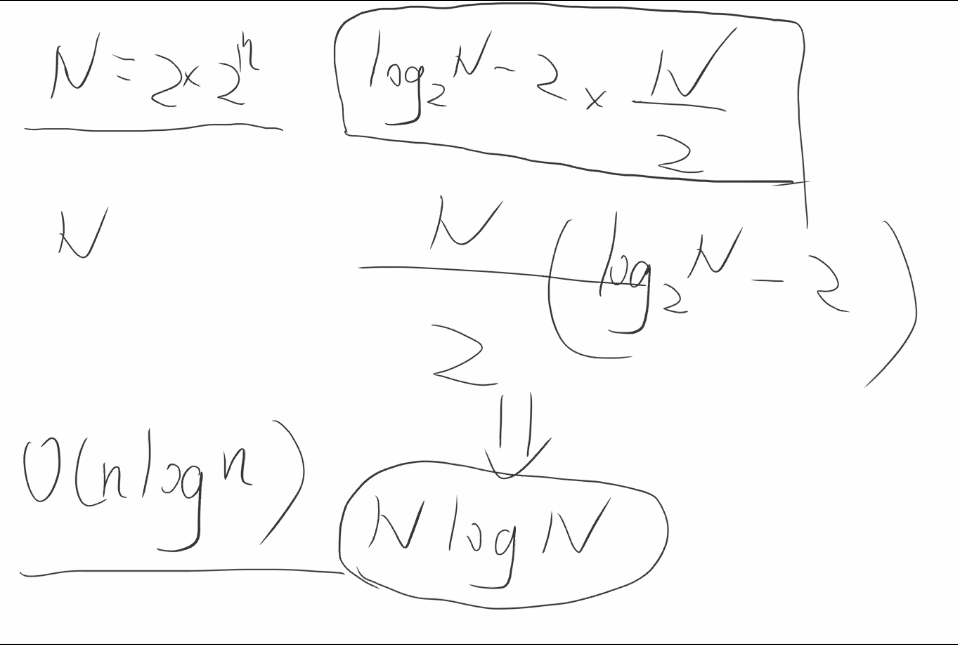 N = 2 × 2ⁿ
log₂ N - 2 × N/2
N
N/2 (log₂ N - 2)
⇓
O(n log n)
N log N